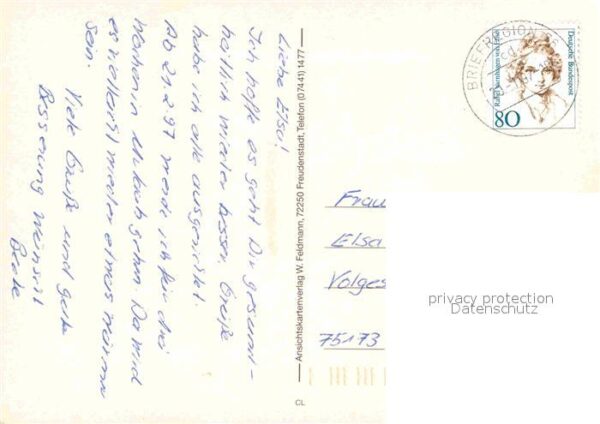 Liebe Elsa!
Ich hoffe es geht Dir gesund-
heitlich wieder besser. Grüße
habe ich alle ausgerichtet.
Ab 21.2.97 werde ich für drei
Wochen in gehn. Da wird
es vielleicht wieder etwas wärmer
sein.
Viele Grüße und gute
Besserung wünscht
Beate
Ansichtskartenverlag W. Feldmann, 72250 Freudenstadt, Telefon (07441) 1477
CL
BRIEFREGION
Deutsche Bundespost
Rahel Varnhagen von Ense
80
Frau
Elsa
Volges
75173
privacy protection
Datenschutz